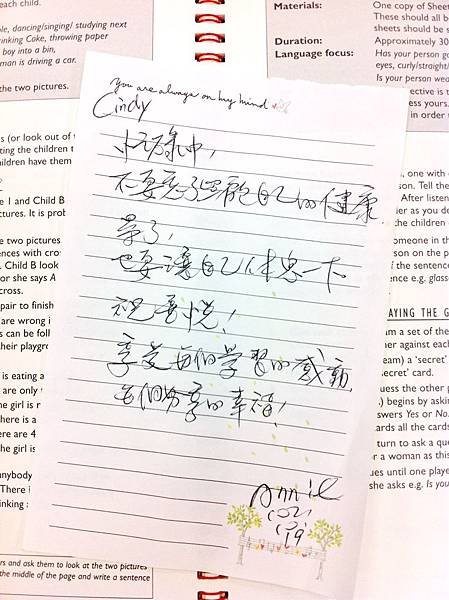 each child.
ple, dancing/singing/ studying next
rinking Coke, throwing paper
boy into a bin,
man is driving a car.
the two pictures.
Materials:
One copy of Sheet
These should all b
sheets should be s
Duration:
Approximately 30
Language focus:
Has your person g
eyes, curly/straight/
Is your person wea
ective is t
ess yours.
in order
You are always on my mind
Cindy
忙碌中,
不要忘了照顧自己的健康
累了,
也要讓自己休息一下
祝喜悅!
享受每個學習的感動
每個分享的幸福!
Annie
19
s (or look out of
ting the children t
ildren have them
e 1 and Child B
ctures. It is prob
e two pictures
ences with cro
. Child B look
or she says A
cross.
pair to finish
are wrong i
s can be foll
their playgro
is eating a
are only
the girl is r
there is a
ere are 4
the girl is
nybody
There i
inking
rs and ask them to look at the two pictures
the middle of the page and write a sentence
, one with
son. Tell the
After listen
er as you de
the children
omeone in th
rson on the p
f the sentenc
ence e.g. glass
AYING THE G
am a set of the
ner against each
eam) a 'secret'
secret' card.
uess the other p
.) begins by askin
swers Yes or No.
ards all the cards
turn to ask a que
r a woman as this
ues until one playe
she asks e.g. Is you